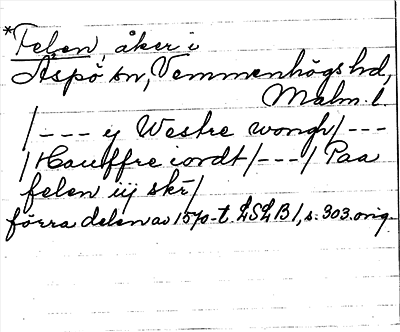 *Felen, åker i
Äspö sn, Vemmenhögs hd,
Malm. l.
/--- ij Westre wongh/---
/Hauffre iordt/---/ Paa
felen iij skr/
förra delen av 1570-t. LSLB 1, s. 303. orig.